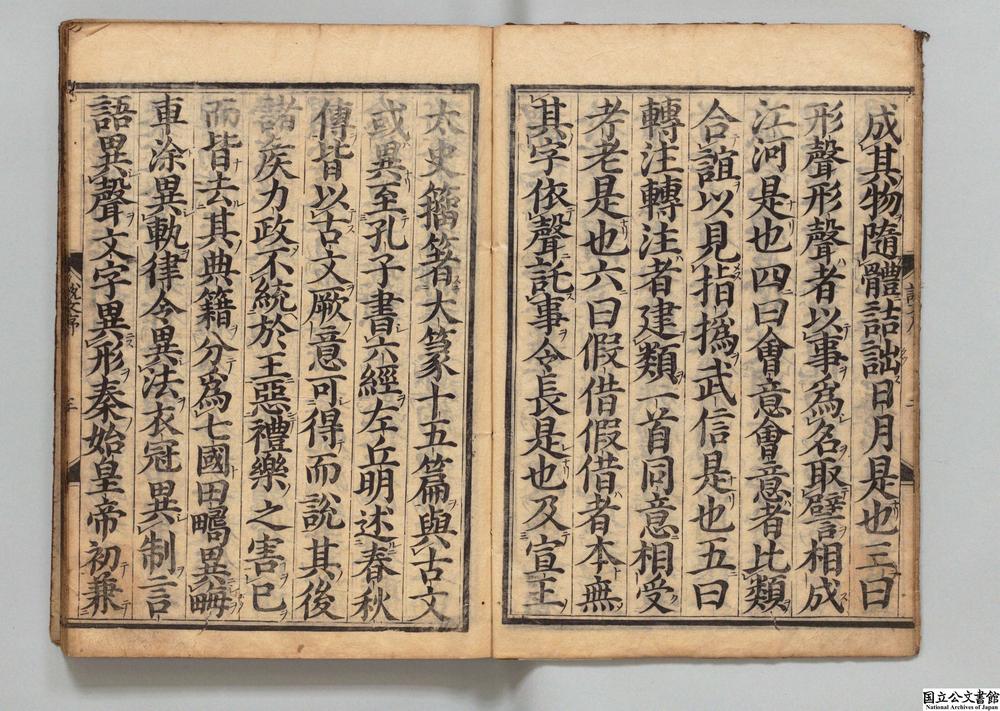 成其物隨體詰詘日月是也三曰
形聲形聲者以事爲名取譬相成
江河是也四曰會意會意者比類
合誼以見指撝武信是也五曰
轉注轉注者建類一首同意相受
考老是也六曰假借假借者本無
其字依聲託事令長是也及宣王
太史籒著大篆十五篇與古文
或異至孔子書六經左丘明述春秋
傳皆以古文厥意可得而說其後
諸矦力政不統於王惡禮樂之害已
而皆去其典籍分爲七國田疇異畮
車涂異軌律令異法衣冠異制言
語異聲文字異形秦始皇帝初兼
說文序
国立公文書館
National Archives of Japan